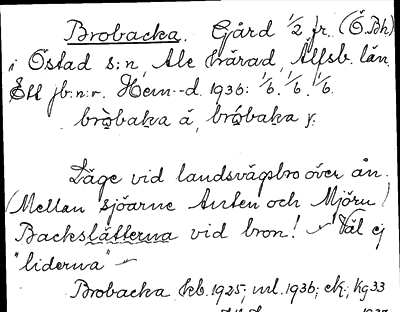 Brobacka. Gård 1/2 fr. (Ö.Bh)
i Östad s:n, Ale härad, Älfsb. län.
Ett jb:n:r. Hem--d. 1936: 1/6. 1/6. 1/6
bròbaka å, bróbaka y.
Läge vid landsvägsbro över ån.
(Mellan sjöarne Anten och Mjörn)
Backslätterna vid bron! Väl ej
"liderna"
Brobacka kb. 1925; ml. 1936; ek.; kg 33